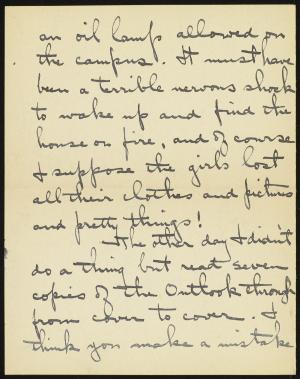 an oil lamp allowed on
the campus. It must have
been a terrible nervous shock
to wake up and find the
house on fire, and of course
I suppose the girls lost
all their clothes and pictures
and pretty things!
The other day I didn't
do a thing but read seven
copies of the Outlook through
from cover to cover. I
think you make a mistake